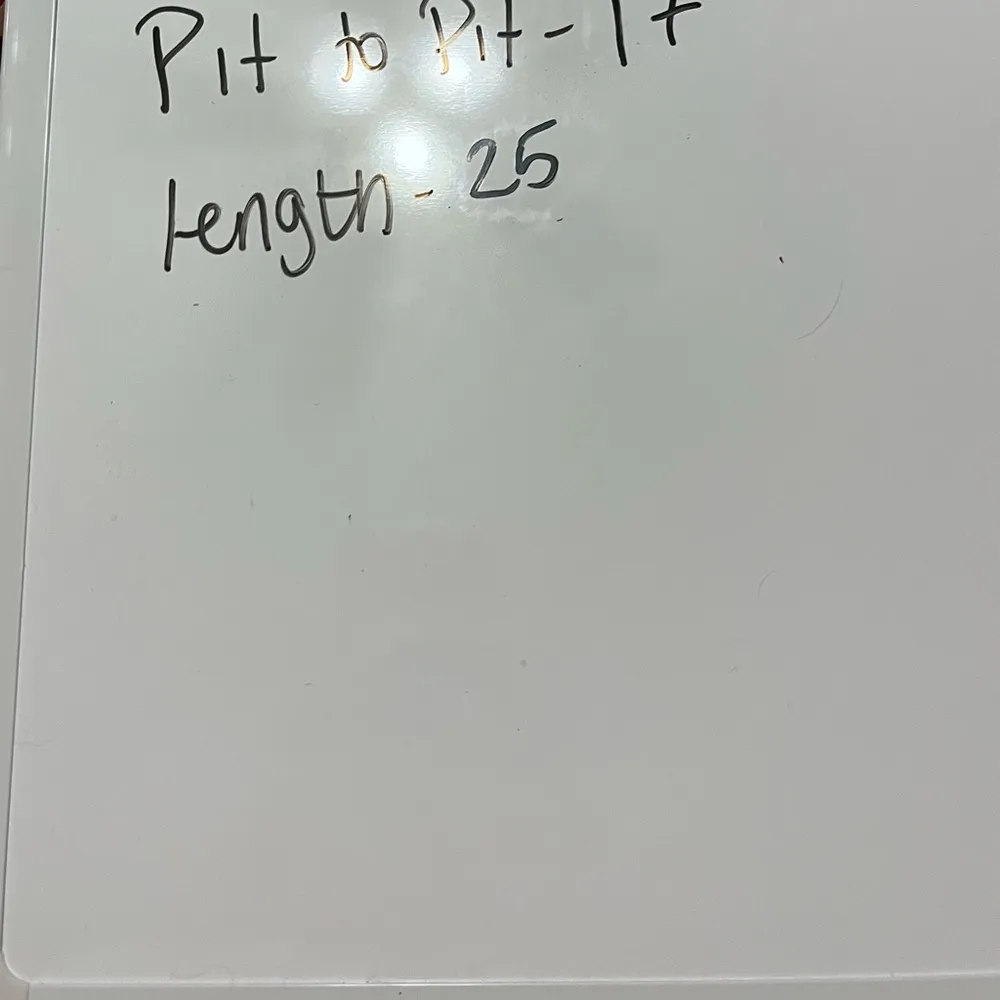 Pit to Pit -
length - 25